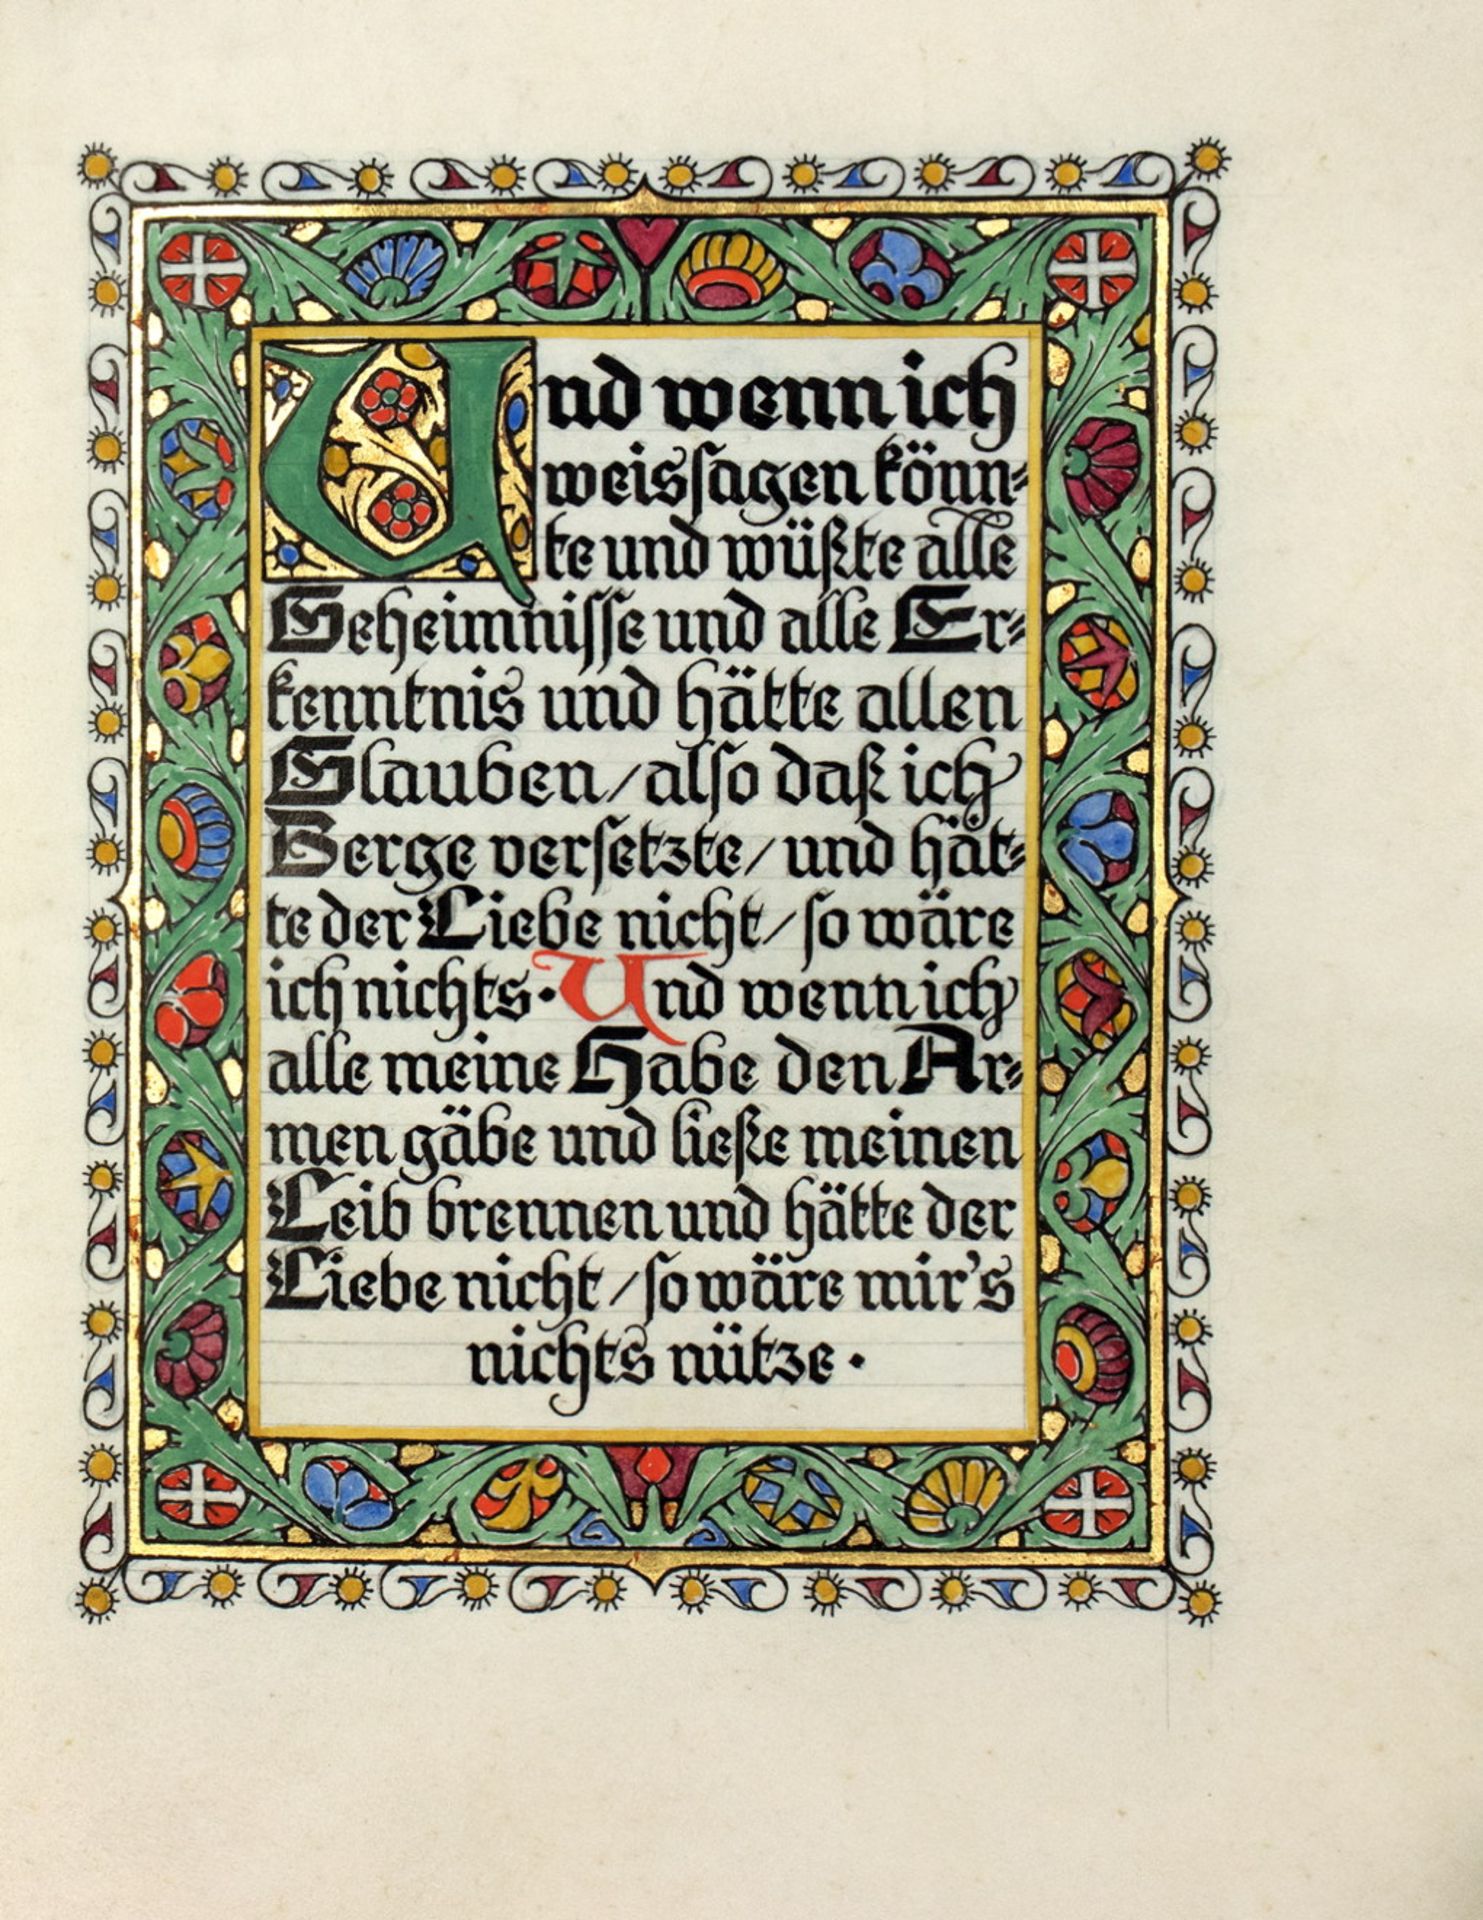 Und wenn ich
weissagen könn-
te und wüßte alle
Geheimnisse und alle Er-
kenntnis und hätte allen
Glauben/also daß ich
Berge versetzte/und hät-
te der Liebe nicht/so wäre
ich nichts·Und wenn ich
alle meine Habe den Ar-
men gäbe und ließe meinen
Leib brennen und hätte der
Liebe nicht/so wäre mir's
nichts nütze·